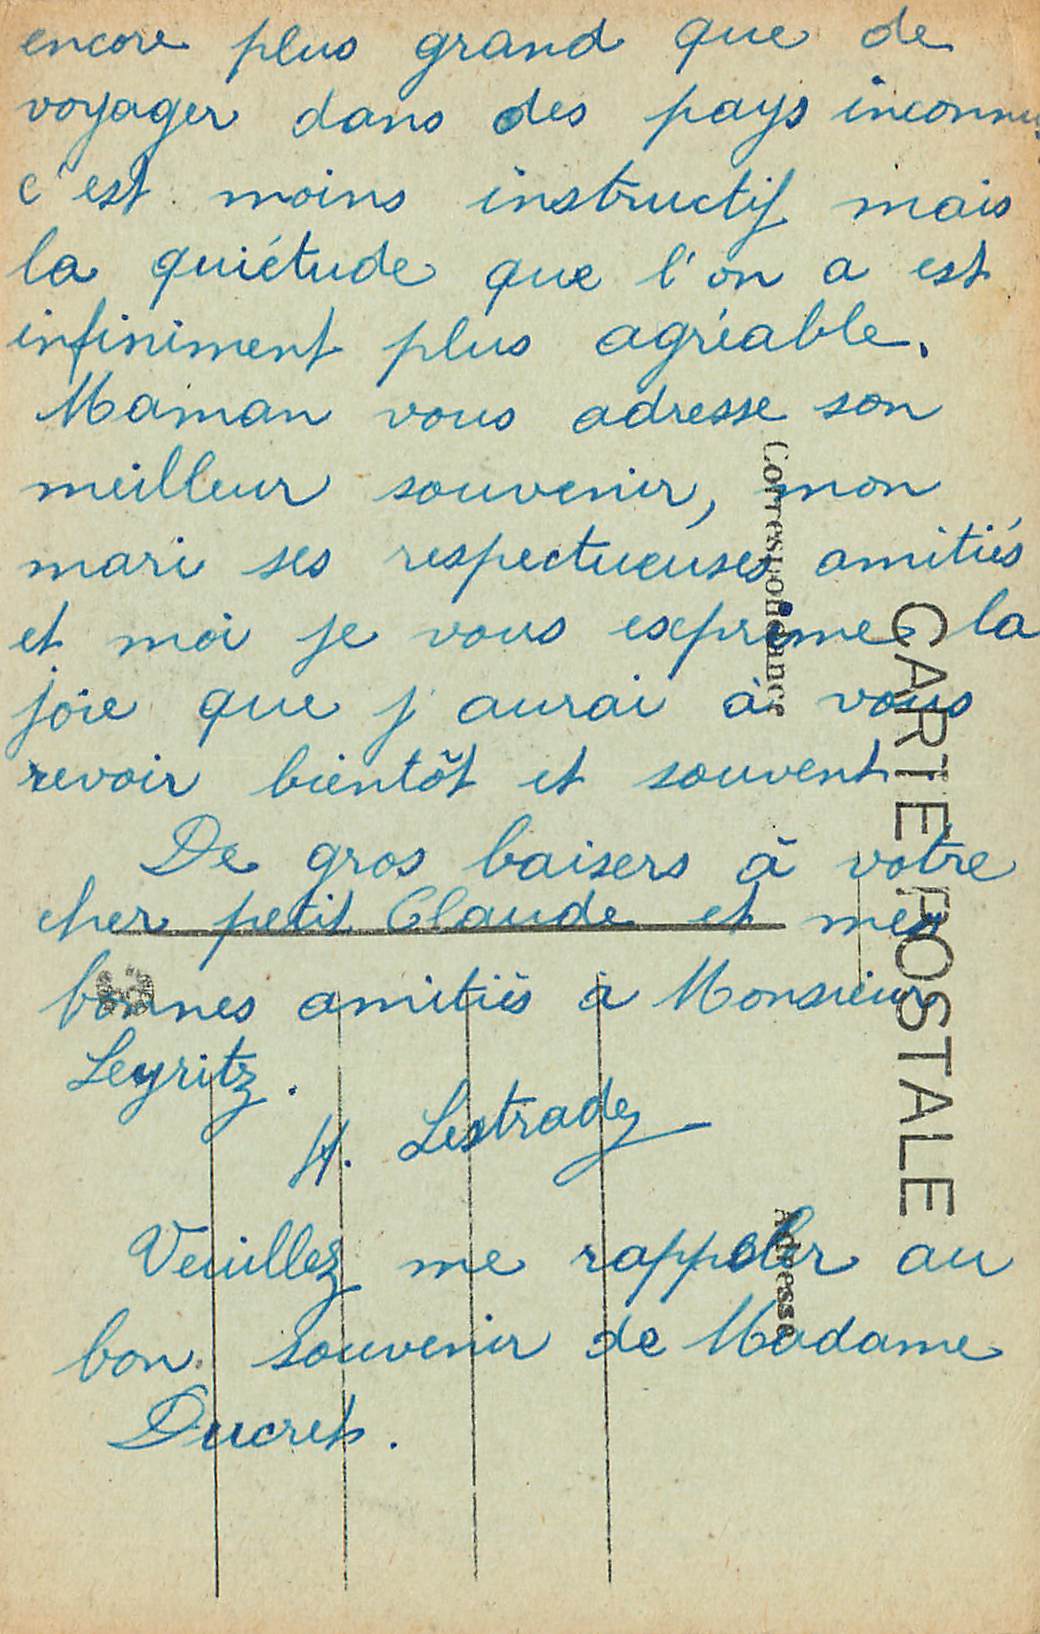 encore plus grand que de
voyager dans des pays inconnus
c'est moins instructif mais
la quiétude que l'on a est
infiniment plus agréable.
Maman vous adresse son
meilleur souvenir, mon
mari ses respectueuses amitiés
et moi je vous exprime la
joie que j'aurai à vous
revoir bientôt et souvent
De gros baisers à votre
cher petit Claude et mes
bonnes amitiés à Monsieur
Leyritz.
H. Lestradez
Veuillez me rappeler au
bon souvenir de Madame
Ducret.
CARTE POSTALE
Correspondance
Adresse